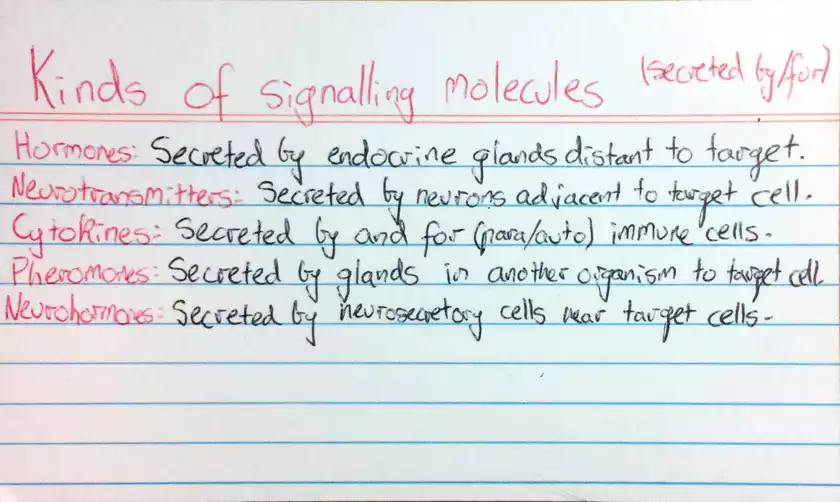 Kinds of signalling molecules (secreted by/for)
Hormones: Secreted by endocrine glands distant to target.
Neurotransmitters: Secreted by neurons adjacent to target cell.
Cytokines: Secreted by and for (para/auto) immune cells.
Pheromones: Secreted by glands in another organism to target cell.
Neurohormones: Secreted by neurosecretory cells near target cells.